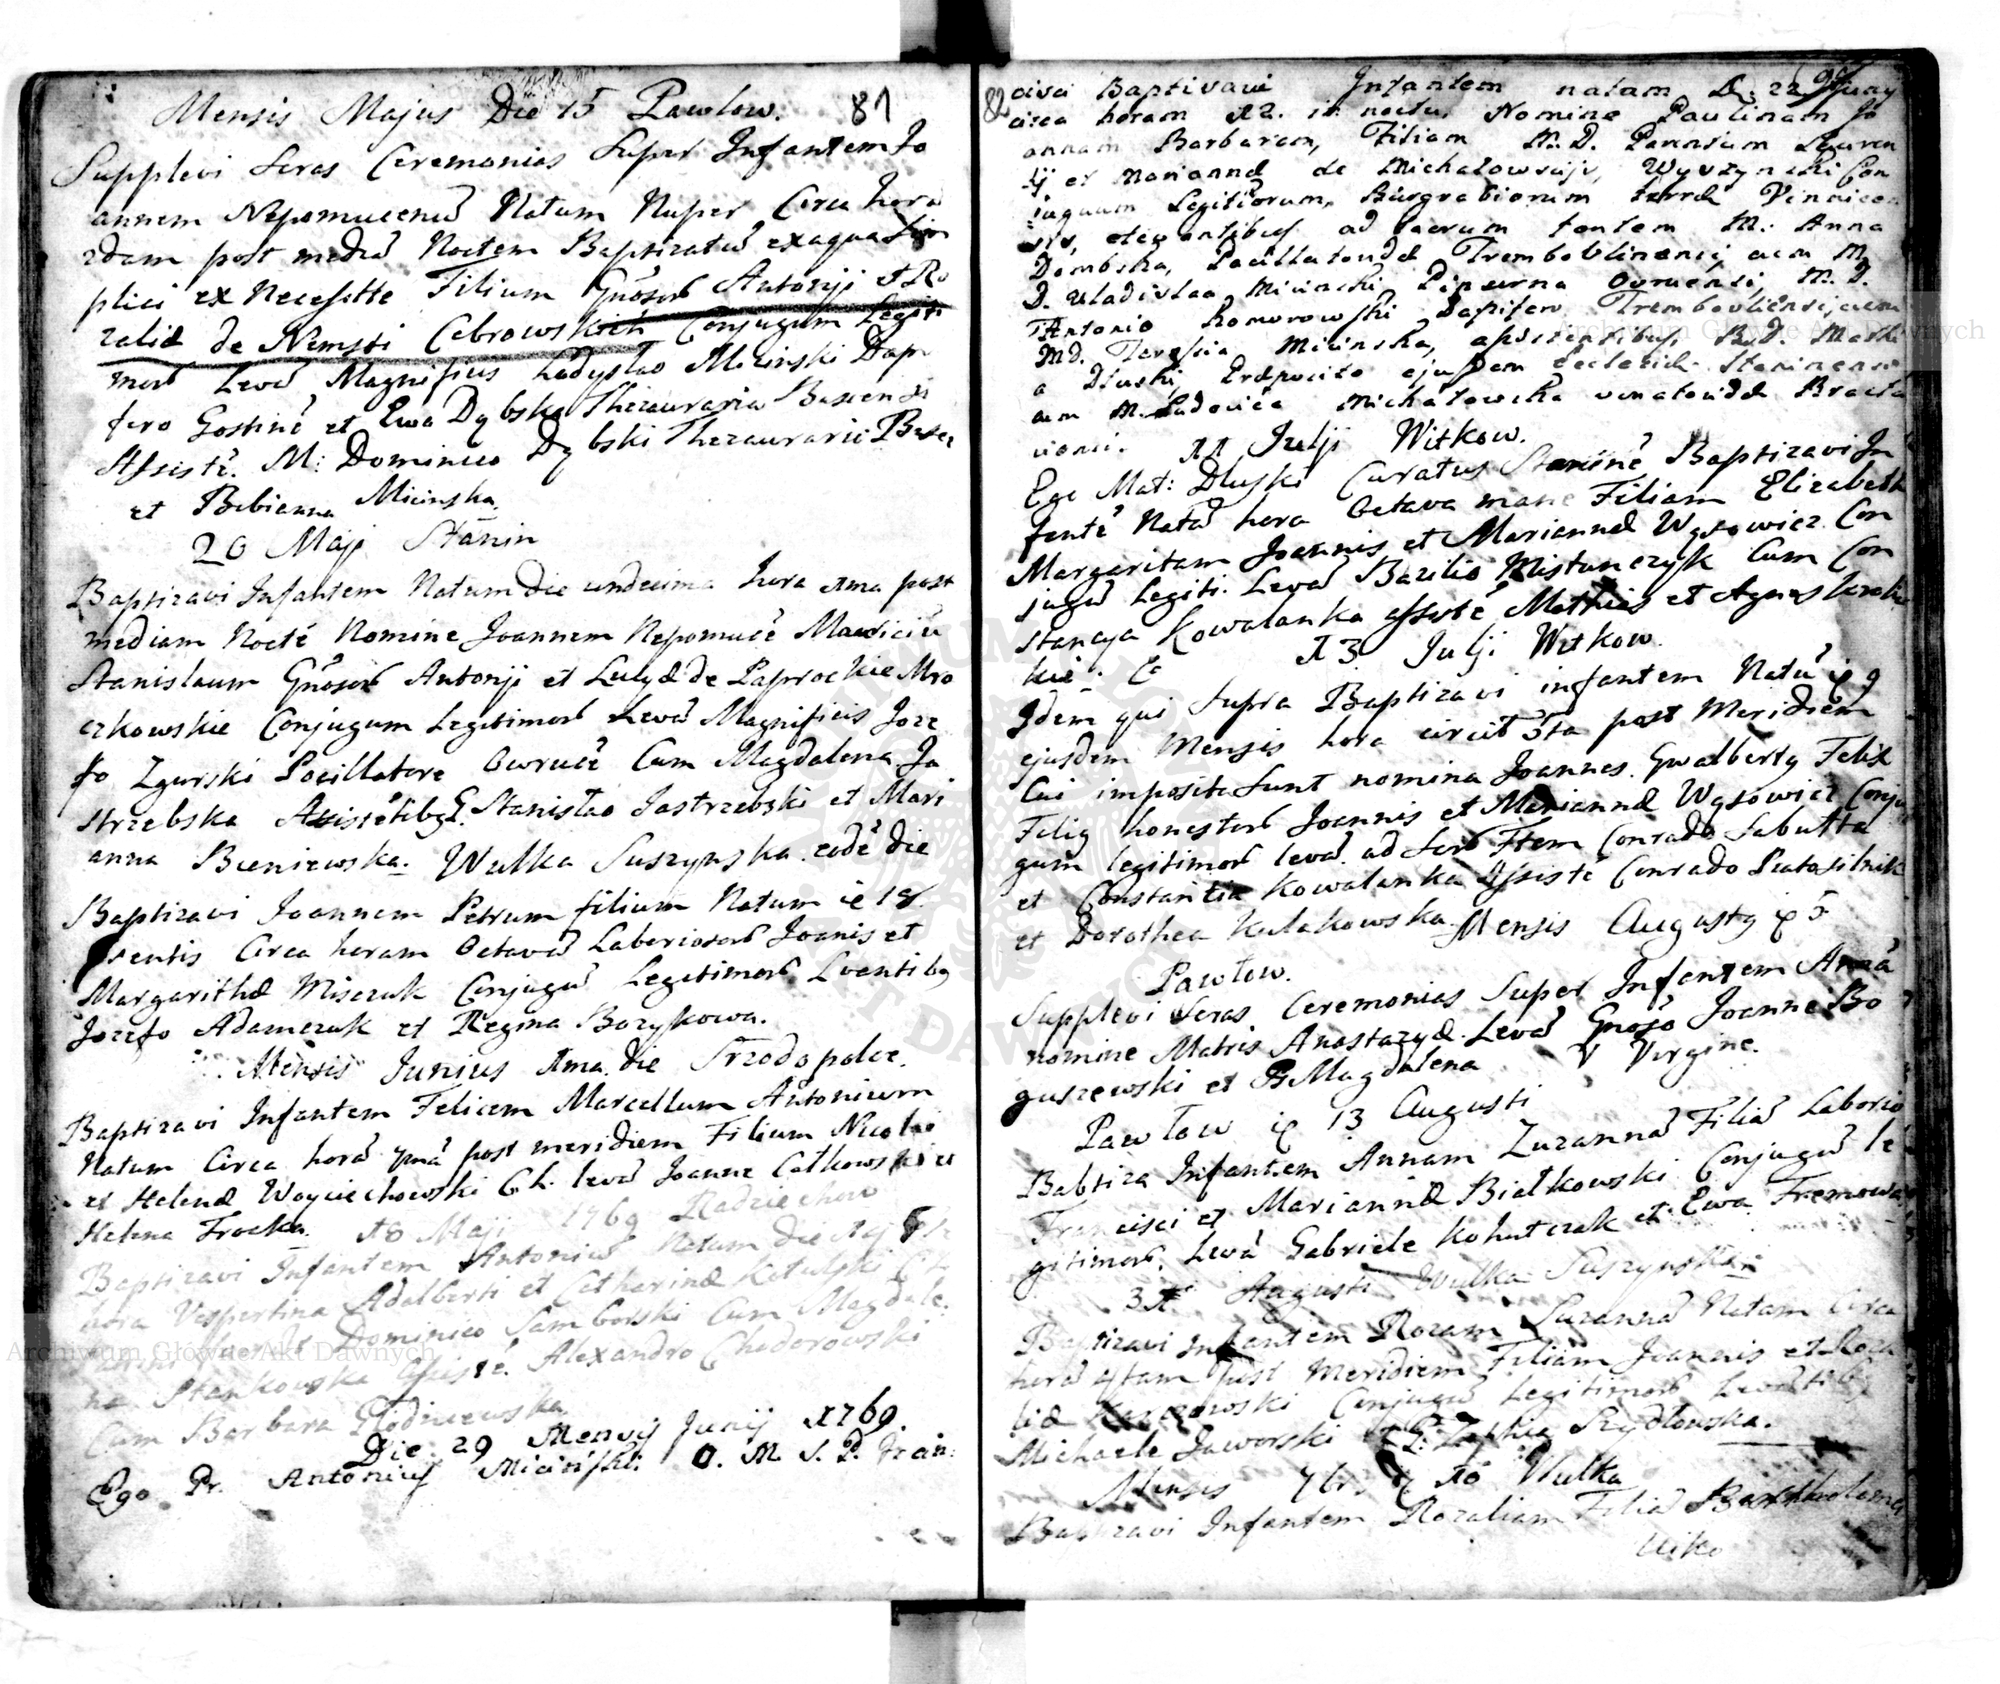 Mensis Majus Die 15 Pawlow. 81
Supplevi Scras Ceremonias Super Infantem Jo
annem Nepomucenu Natum Nuper Circa hora
2dam post media Noctem Baptizatu ex aqua Sim
plici ex Necessitte Filium Gnosor Antonji et Ro
zaliæ de Nemsti Cebrowskich Conjugum Legiti
mor Leva Magnificus Ladyslao Micinski Dapi
fero Gostine et Ewa Dąbska Thezauraria Buscensi
Assiste. M: Dominico Dąbski Thezaurario Busce
et Bibianna Micinska.
20 Maji Stanin
Baptizavi Infantem Natum die undecima hora 1ma post
mediam Nocte Nomine Joannem Nepomuce Mauriciu
Stanislaum Gnosor Antonji et Lucyæ de Paprockie Mro
czkowskie Conjugum Legitimor Leva Magnificis Joze
fo Zgurski Pocillatore Owruce Cum Magdalena Ja
strzebska Assistetibq. Stanislao Jastrzebski et Mari
anna Bieniewska. Wulka Suszynska eode die
Baptizavi Joannem Petrum filium Natum 18
Presentis Circa horam Octava Laboriosor Joanis et
Margarithæ Misczuk Conjugu Legitimor Lvantibq
Jozefo Adamczuk et Regina Bozykowa.
Mensis Junius 1ma die Srzodopolce.
Baptizavi Infantem Felicem Marcellum Antonium
Natum Circa hora 7ma post meridiem Filium Nicolai
et Helenæ Woyciechowski C. L. leva Joanne Catkowski et
Helena Trocka. 18 Maji 1769 Radziechow
Baptizavi Infantem Antoniu Natum Die
hora Vespertina Adalberti et Catharinæ Kotulski C L
Dominico Samborski Cum Magdale
na Stankowska Assiste. Alexandro Chodorowski
Cum Barbara
Die 29 Mensis Junij 1769.
Ego Pr. Antonius Miciński O. M. S. P. Fran:
82
cisci Baptivavi Infantem natam D. 22 Juny
circa horam 12. in noctu, Nomine Paulinam Jo
annam Barbaram, Filiam M. D. Parensum Lauren
tij et Mariannæ de Michałowscijs, Wyrzynski Con
jugum Legitiorum, Burgrabiorum terræ Vinnicen
sis, elevantibus ad sacrum fontem M. Anna
Dombska, Pocillatoridæ Tremboblinensi, cum M.
D. Uladislao Micinski Pincerna Ovrucensi, M. D.
Antonio Komorowski Dapifero Trembovliensi, cum
MD. Teressia Micinska, assistentibus R. D. Mathi
a Dłuski Præposito ejusdem Ecclesiæ Staninensi
cum M. Ludovica Michałowska venatoridæ Bracla
viensi. 11 Julji Witkow.
Ego Mat: Dłuski Curatus Stanine Baptizavi In
fente Nata hora Octava mane Filiam Elizabeth
Margaritam Joannis et Mariannæ Wąsowicz Con
jugu Legiti. Leva Bazilio Mistunczyk Cum Con
stancya Kowalanka Assiste Mathias et Agnes
kie. 13 Julji Witkow.
Jdem qui Supra Baptizavi infantem Natu 9
ejusdem Mensis hora circit 5ta post Meridiem
Cui imposita Sunt nomina Joannes. Gwalbertq Felix
Filiq honestor Joannis et Mariannæ Wąsowicz Conju
gum legitimor leva. ad Scr Ftem Conrado Sabutta
et Constantia Kowalanka Assiste Conrado
et Dorothea Kulakowska. Mensis Augustq 5
Pawlow.
Supplevi Scras Ceremonias Super Infantem Anna
nomine Matris Anastazyæ. Leva Gnoso Joanne Bo
guszewski et Magdalena V Virgine.
Pawlow 13 Augusti
Babtiza Infantem Annam Zuzanna Filia Laborio
Francisci et Mariannæ Białkowski Conjugu le
gitimor. Leva Gabriele Kohutczak et Ewa
31 Augusti Wulka Suszynska
Baptizavi Infantem Rozam Zuzanna Natam Circa
hora 4tam post Meridiem Filiam Joannis et Roza
liæ Conjugu Legitimor Levatibq
Michaele Jaworski et Zophia Szydłowska.
Mensis 7bris 10 Wulka
Baptizavi Infantem Rozaliam Filia Bartholomei